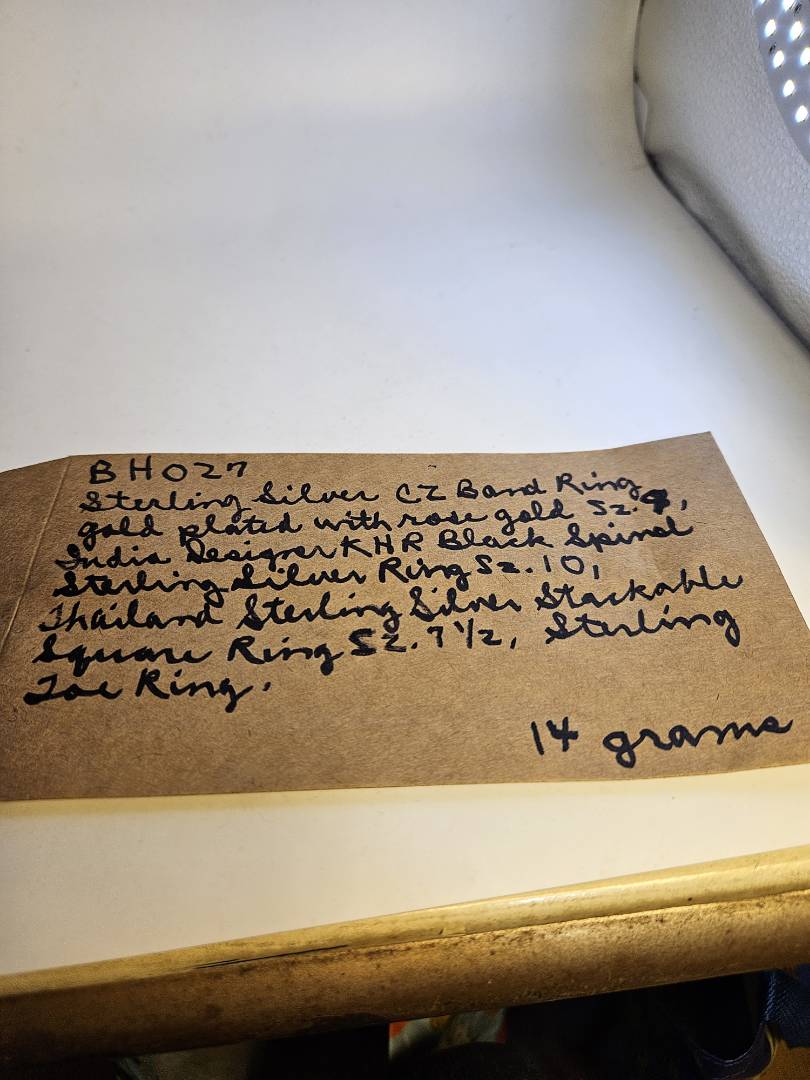 BH027
Sterling Silver CZ Band Ring
gold plated with rose gold Sz. 9,
India Designer KHR Black Spinel
Sterling Silver Ring Sz. 10,
Thailand Sterling Silver Stackable
Square Ring Sz. 7 1/2, Sterling
Toe Ring.
14 grams